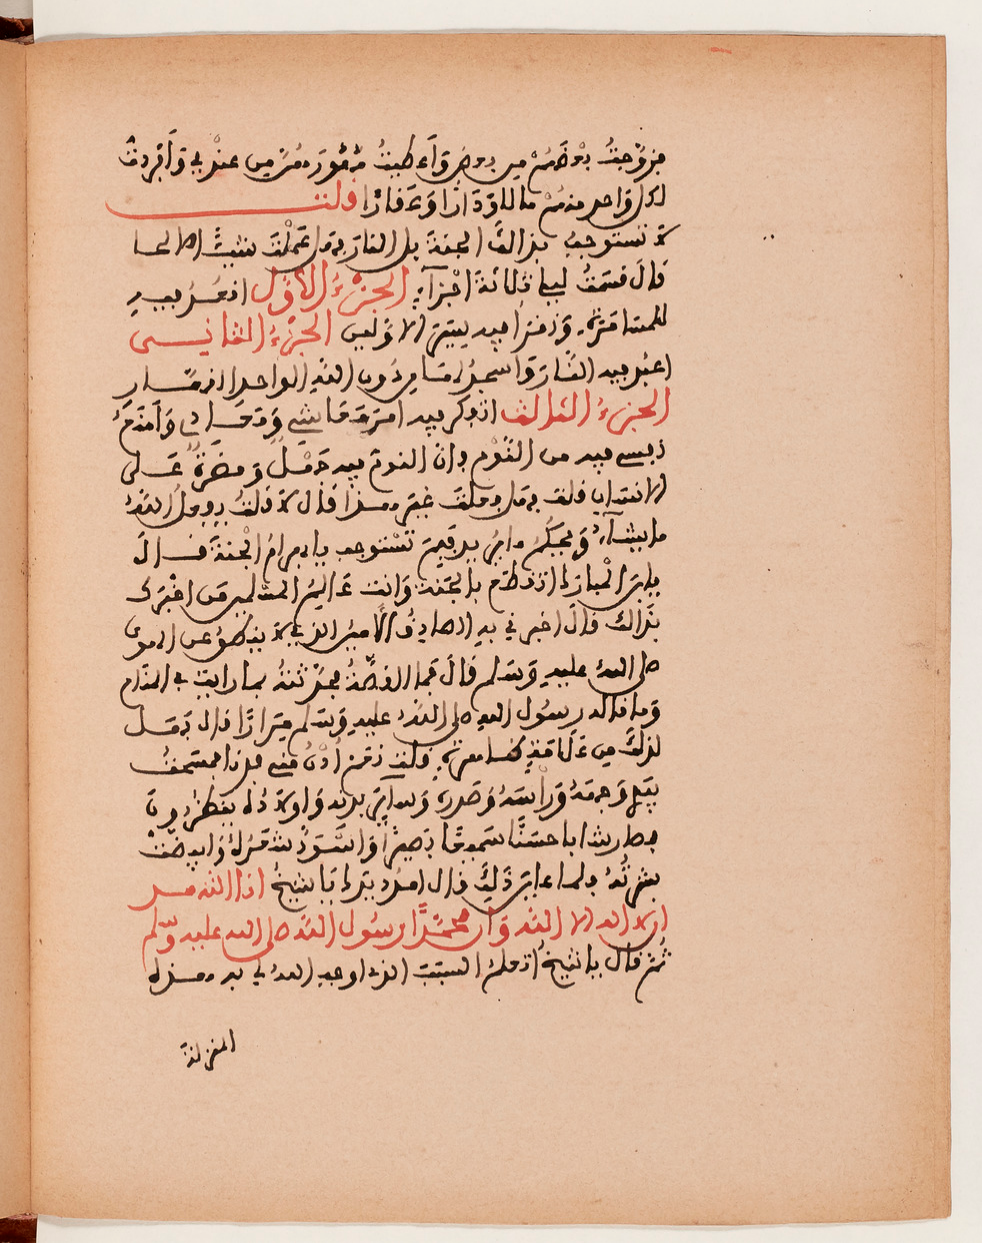 فزوجت بعضهم من بعض وأعطيت مهورهن من عندي وأفردت
لكل واحد منهم مالا ودارا وعقارا قلت
لا تستوجب بذالك الجنة بل النار هل عملت شيئا
قال قسمت ليلي ثلاثة أجزآء الجزء الأول اقعد فيه
للمسامرة وذكر فيه سير الأولين الجزء الثاني
اعبد فيه النار واسجد لها من دون الله الواحد القهار
الجزء الثالث اتفكر فيه امر معاشي ومعادي وامنع
نفسي فيه من النوم فان النوم فيه ومضرة على
الانسان قلت هل فعلت غير هذا قال لا قلت يفعل الله
ما يشآء ويحكم ما يريد فبم تستوجب يا بهرام الجنة قال
يا بن المبارك اتقطع بالجنة وانت عالم المسلمين من اخبرك
بذالك قال اخبرني به الصادق الأمين الذي لا ينطق عن الهوى
صلى الله عليه وسلم قال فما القصة فحدثته بما رايت في المنام
وما قاله رسول الله صلى الله عليه وسلم مرارا قال هل
لذلك من علامة قلت نعم ادن مني فدنا فمسحت
بيدي وجهه وراسه وصدره وساير بدنه واولاده ينظرون
فصار شابا حسنا سميعا بصيرا واسود شعره وابيضت
بشرته فلما عاين ذلك قال امدد يدك يا شيخ انا اشهد
ان لا اله الا الله وان محمدا رسول الله صلى الله عليه وسلم
ثم قال يا شيخ اتعلم السبب الذي اوجب الله لي به هذه
المنزلة